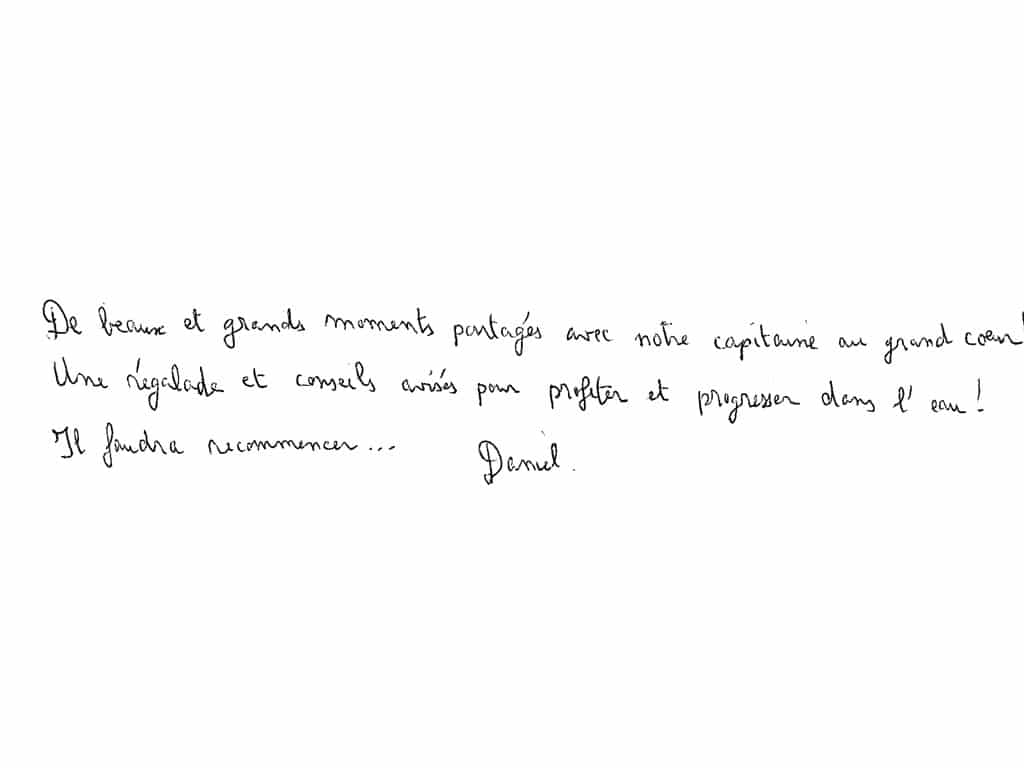 De beaux et grands moments partagés avec notre capitaine au grand coeur!
Une régalade et conseils avisés pour profiter et progresser dans l'eau!
Il faudra recommencer... Daniel.